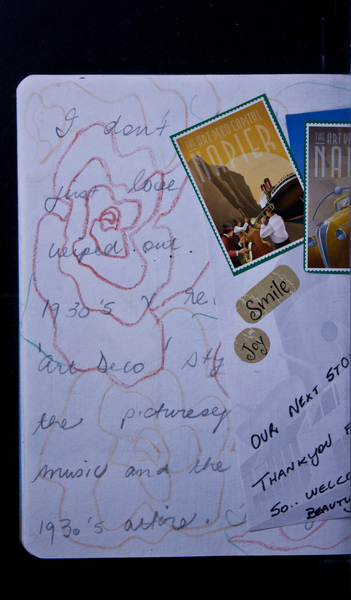 I don't
just love
wiped out.
1930's &
Art Deco' sty
the picturesq
music and the
1930's attire.
THE ART DECO CAPITAL
NAPIER
THE ART D
NA
Smile
Joy
OUR NEXT STO
THANKYOU F
SO.. WELCO
BEAUTY